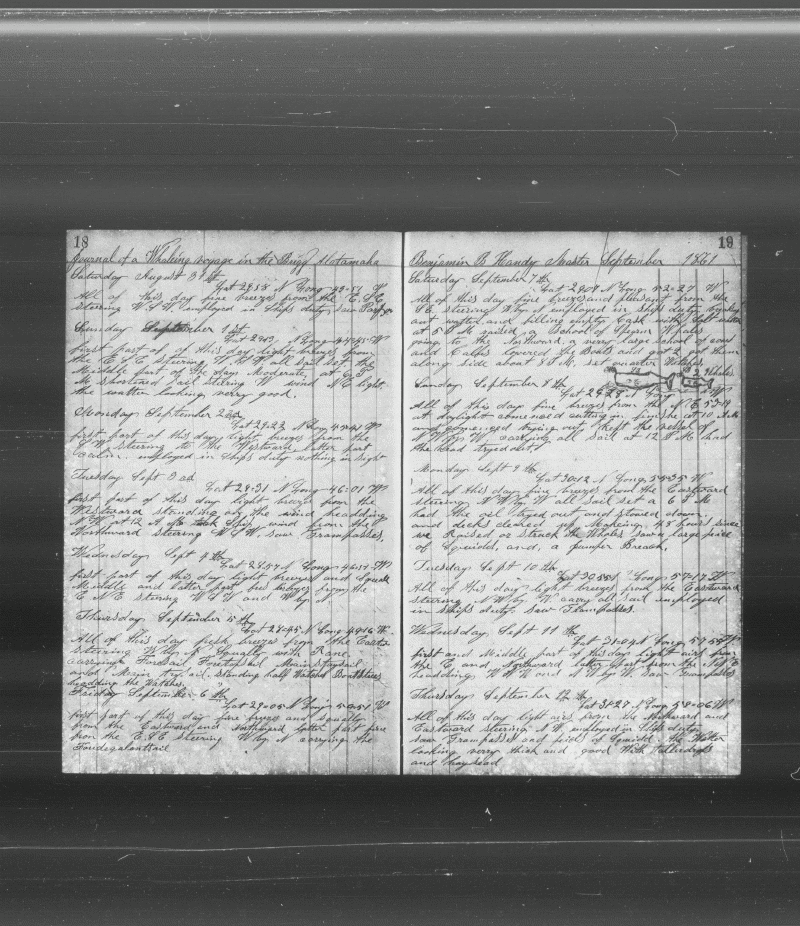 18
Journal of a Whaling voyage in the Brigg Alatamaha
Saturday August 31st
Lat 29-58 N Long 43-51 W
All of this day fine breeze from the E.S.E
steering W.S.W employed in ships duty saw
Sunday September 1st
Long 44-45 W
first part of this day light breeze from
the E.S.E steering W.S.W all sail set the
Middle part of the day Moderate, at 6 P
M shortened sail steering W wind N.E light
the watter looking verry good.
Monday September 2nd
Lat 29-23 N Long 45-41 W
first part of this day light breeze from the
E.N.E steering to the Westward latter part
employed in ships duty nothing in sight
Tuesday Sept 3rd
Lat 29-31 N Long 46-01 W
first part of this day light breeze from the
Westward standing by the wind headding
N.W at 12 A M wind from the
Northward steering W.S.W. saw Grampusses.
Wednesday Sept 4th
Lat 28-54 N Long 46-57 W
first part of this day light breeze and squalls
Middle and latter part fine breeze from the
E N E stering W.S.W and W by N
Thursday September 5th
Lat 28-45 N Long 49-16 W
All of this day fresh breeze from the Easte
steering W by N Squally with Rane
carrying Foresail Foretopsail Main staysail
and Main try sail. standing half Watches Boatsteers
headding the Watches.
Friday September 6th
Lat 29-05 N Long 50-51 W
first part of this day fine breeze and squally
from the Eastward and Northward latter part fine
from the E.S.E steering W by N carrying the
19
Benjamin B Handy Master September 1861
Saturday September 7th
Lat 29-09 N Long 52-27 W
All of this day fine breeze and pleasant from the
S.E. steering W by N employed in Ships duty
watter and filling empty Cask with Salt watter
at 5 P M raised a School of Sperm Whales
going to the Northward a very large school of cows
and Calfs lowered the Boats and got 2 got them
along side about 8 P M. set quarter Watches
2 Whales
Sunday September 8th
Lat 29-28 N Long 53-19 W
All of this day fine breeze from the N E
at daylight comenced cutting in, finishe at 10 A M
and comenced trying out kept the vessel of
N W by W carrying all sail at 12 P M had
the head tryed out
Monday Sept 9th
Lat 30-12 N Long 55-35 W
All of this day fine breeze from the Eastward
steering N W by W all sail set at 6 P M
had the oil tryed out and stowed down
and decks cleared up Makeing 48 hours since
we Raised or struck the Whales saw a large piece
of Squuid, and, a jumper Breach.
Tuesday Sept 10th
Lat 30-55 N Long 57-17 W
All of this day light breeze from the Eastward
steering N W by W carry all sail employed
in ships duty. saw Grampusses.
Wednesday Sept 11th
Lat 31-04 N Long 57-59 W
first and Middle part of this day light airs from
the E and Northward latter part from the N E
headding W N W and N W by W. saw Grampusses
Thursday September 12th
Lat 31-27 N Long 58-06 W
All of this day light airs from the Northward and
Eastward steering N W employed in ships duty
saw Grampusses and peices of Squuid. the Watter
looking verry thick and good With
and hayseed